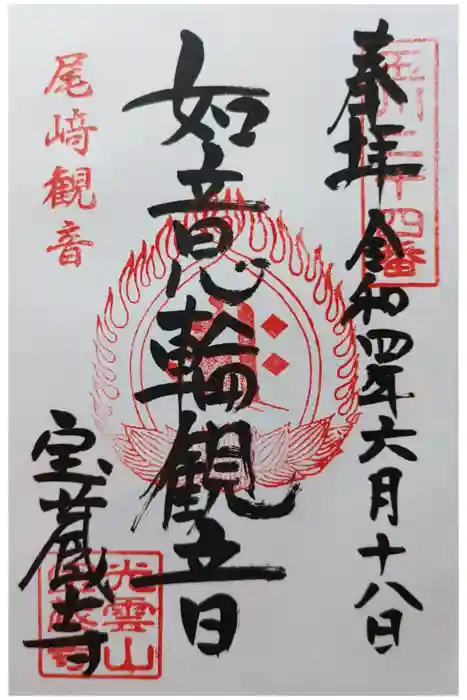 奉拝
令和四年六月十八日
玉川二十四番
如意輪観音
尾﨑観音
宝蔵寺
光雲山
宝蔵寺